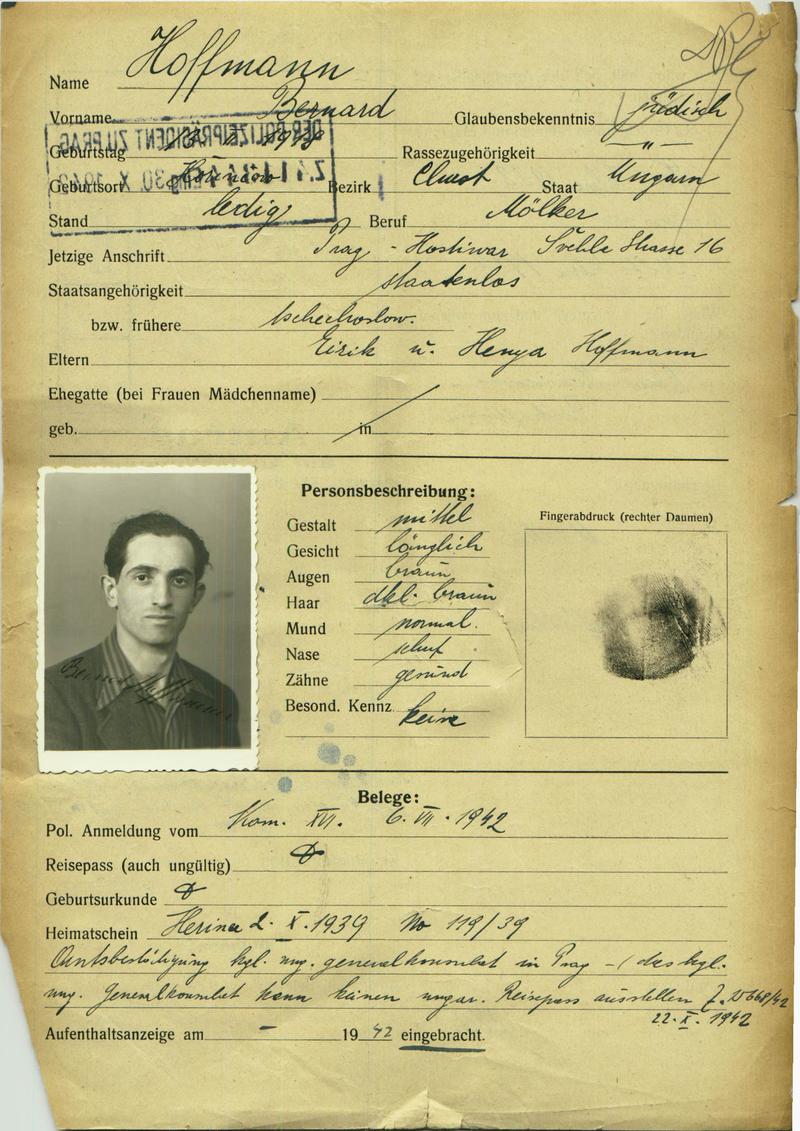 Name Hoffmann
Vorname Bernard Glaubensbekenntnis jüdisch
DER POLIZEIPRÄSIDENT ZU PRAG
Geburtstag Rassezugehörigkeit — " —
Eing. 30. X. 1942
Geburtsort Bezirk Chust Staat Ungarn
Stand ledig Beruf Mölker
Jetzige Anschrift Prag - Hostiwar Švehla Strasse 16
Staatsangehörigkeit staatenlos
bzw. frühere tschechoslow.
Eltern Eizik u. Henya Hoffmann
Ehegatte (bei Frauen Mädchenname)
geb. in
Personsbeschreibung:
Gestalt mittel
Gesicht länglich
Augen braun
Haar dkl. braun
Mund normal.
Nase
Zähne gesund
Besond. Kennz. keine
Fingerabdruck (rechter Daumen)
Bernard Hoffmann
Belege:
Pol. Anmeldung vom Kom. XVI. 6. VII. 1942
Reisepass (auch ungültig)
Geburtsurkunde
Heimatschein 2. X. 1939 No 119/39
Amtsbestätigung kgl. ung. generalkonsulat in Prag – (das kgl.
ung. Generalkonsulat kann keinen ungar. Reisepass ausstellen
22. X. 1942
Aufenthaltsanzeige am - 1942 eingebracht.